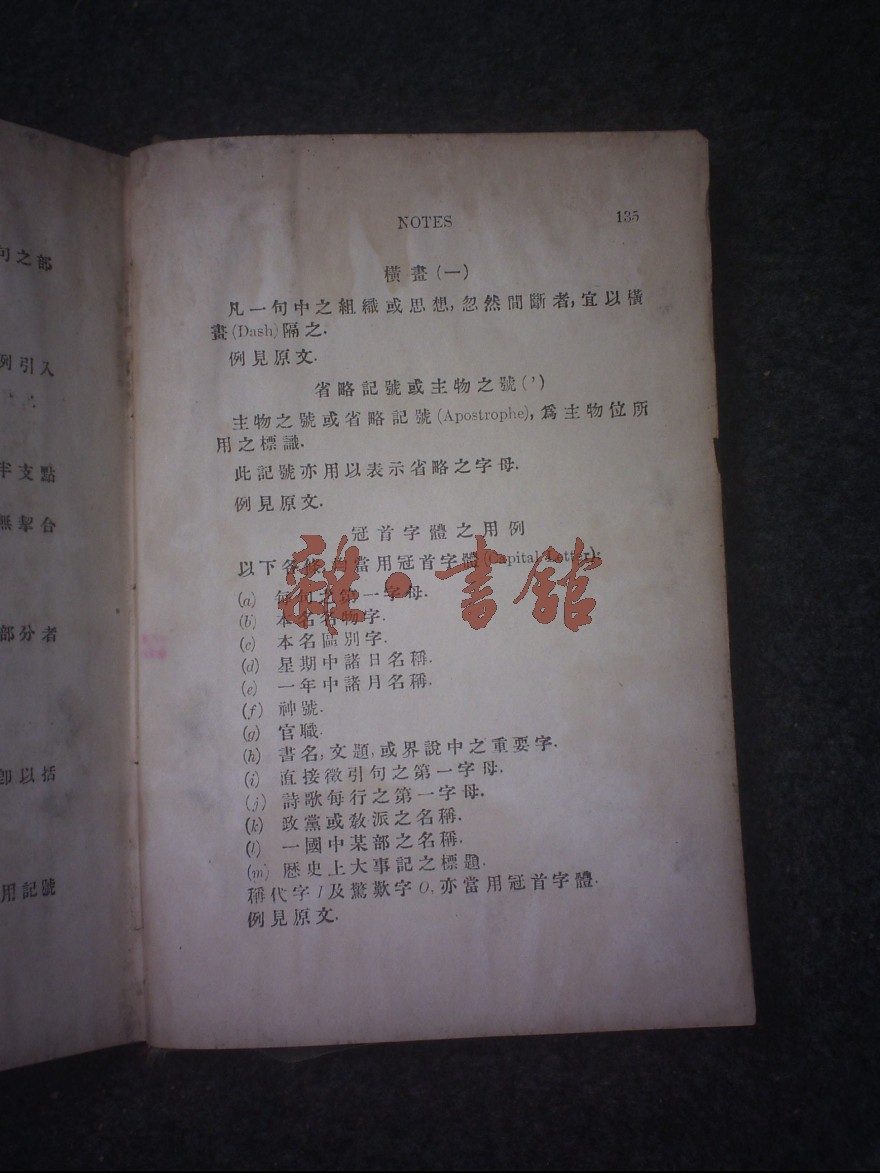 句之部
列引入
支點
無挈合
部分者
卽以括
用記號
NOTES 135
橫畫(—)
凡一句中之組織或思想,忽然間斷者,宜以橫
畫(Dash)隔之.
例見原文.
省略記號或主物之號(’)
主物之號或省略記號(Apostrophe),爲主物位所
用之標識.
此記號亦用以表示省略之字母.
例見原文.
冠首字體之用例
以下各條,當用冠首字體(Capital Letter):
(a) 每句之第一字母.
(b) 本名名物字.
(c) 本名區別字.
(d) 星期中諸日名稱.
(e) 一年中諸月名稱.
(f) 神號.
(g) 官職.
(h) 書名,文題,或界說中之重要字.
(i) 直接徵引句之第一字母.
(j) 詩歌每行之第一字母.
(k) 政黨或敎派之名稱.
(l) 一國中某部之名稱.
(m) 歷史上大事記之標題.
稱代字 I 及驚歎字 O, 亦當用冠首字體.
例見原文.
雜·書館